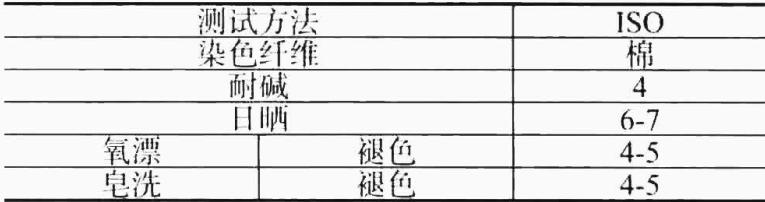 测试方法 ISO
染色纤维 棉
耐碱 4
日晒 6-7
氧漂 褪色 4-5
皂洗 褪色 4-5